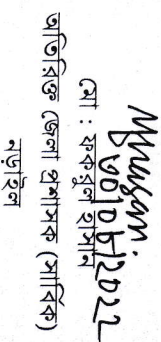 ০৮/০৮/২০২২
মো: ফকরুল হাসান
অতিরিক্ত জেলা প্রশাসক (সার্বিক)
নড়াইল